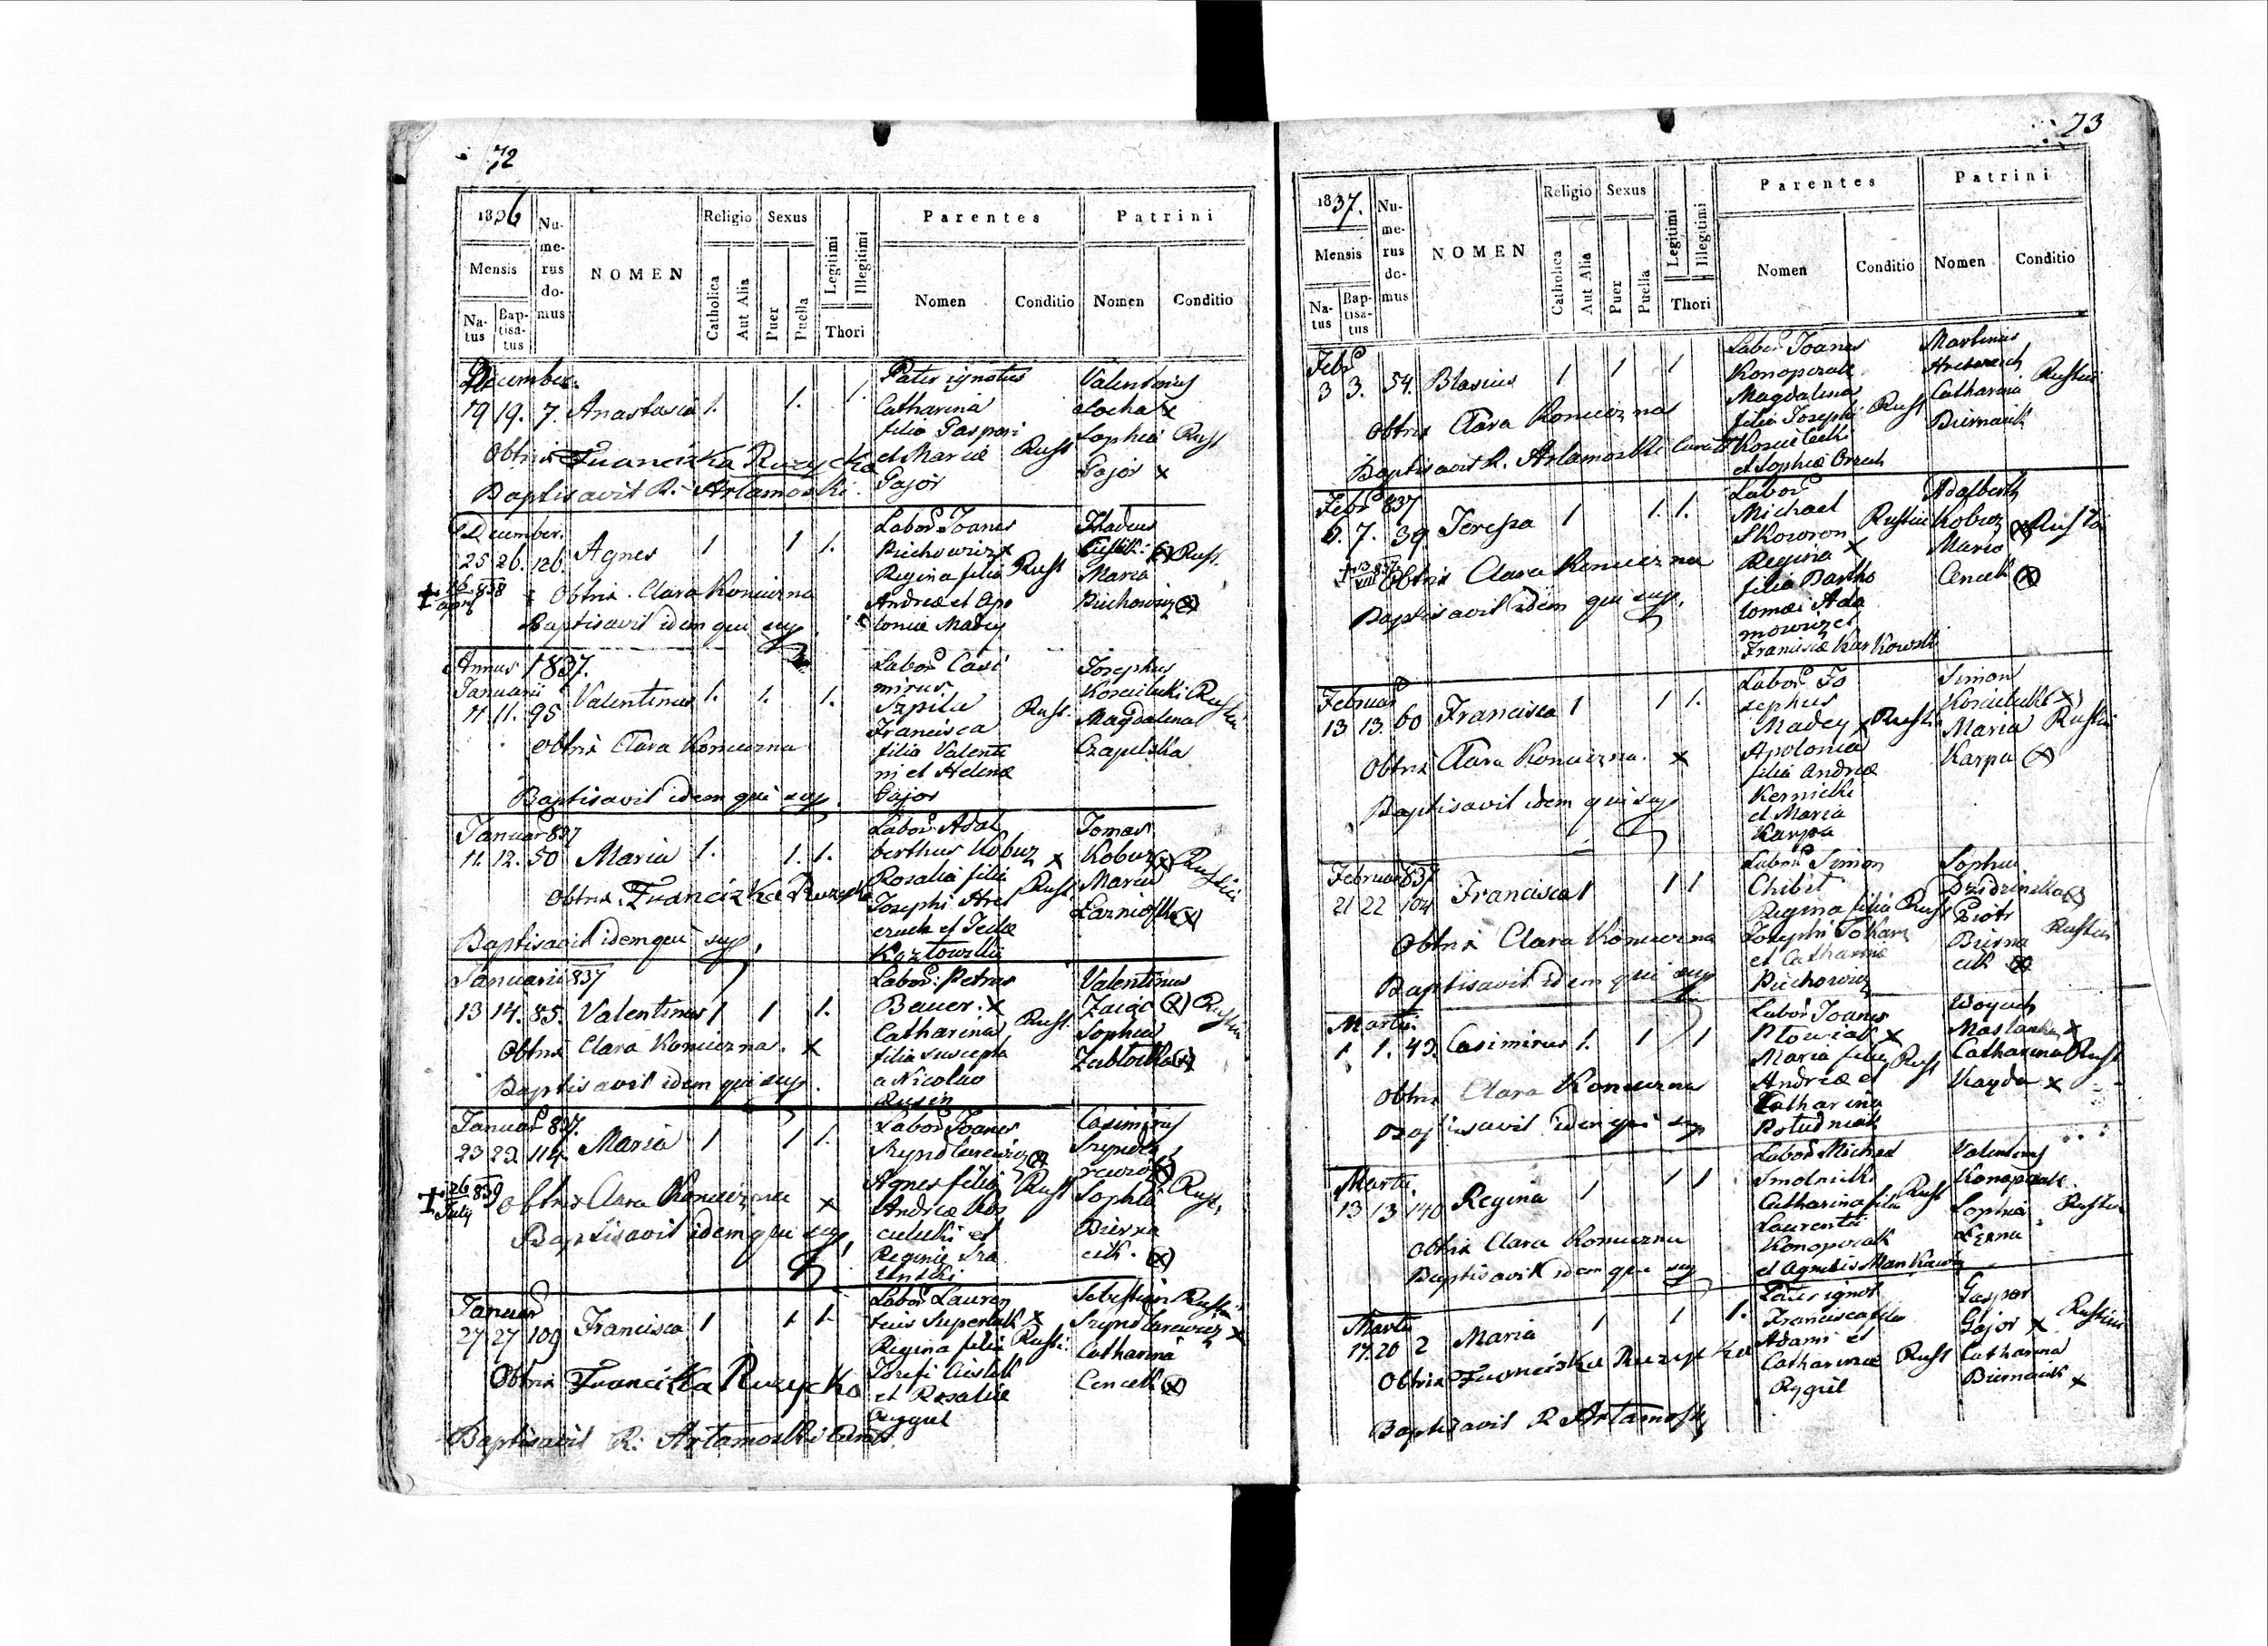 72
1836
Numerus domus
NOMEN
Religio
Sexus
Legitimi
Illegitimi
Parentes
Patrini
Mensis
Catholica
Aut Alia
Puer
Puella
Thori
Nomen
Conditio
Nomen
Conditio
Natus
Baptisatus
December.
19 19. 7. Anastasia 1. 1. 1.
Pater ignotus
Catharina
filia Gaspari
et Mariæ Rust
Gajor
Valentinus
Locha x
Sophia Rust
Gajor x
Obtrix Franciszka Ruzycka
Baptisavit R. Artamoski
December.
25 26. 126. Agnes 1 1 1.
Labor. Joanes
Piechowicz x
Regina filia Rust
Andreæ et Apo
loniæ Madey
Thadeus
Rust.
Maria
Piechowicz (x)
+ 16/april 838
Obtrix Clara Konieczna
Baptisavit idem qui sup.
Annus 1837.
Januarii
11. 11. 95 Valentinus 1. 1. 1.
Labor. Casi
mirus
Szpila Rust.
Francisca
filia Valenti
ni et Helenæ
Gajor
Josephus
Koscielecki Rustici
Magdalena
Czapelska
Obtrix Clara Konieczna
Baptisavit idem qui sup.
Januar 837
11. 12. 50 Maria 1. 1. 1.
Labor. Adal
berthus Kobuz x
Rosalia filia Rust.
Josephi
et Teclæ
Kozlowski
Tomas
Kobuz (x) Rustici
Maria
(x)
Obtrix Franciszka Ruzycka
Baptisavit idem qui sup.
Januarii 837
13 14. 85. Valentinus 1 1 1.
Labor. Petrus
Bauer. x
Catharina Rust.
filia suscepta
a Nicolao
Rusin
Valentinus
Zaiąc (x) Rustici
Sophia
Zablocka (x)
Obtrix Clara Konieczna. x
Baptisavit idem qui sup.
Januar 837.
23 23 114. Maria 1 1 1.
Labor Joanes
Szyndlarewicz (x)
Agnes filia Rust
Andreæ Kos
cielecki et
Reginæ
Casimirus
Szyndla
rewicz (x)
Sophia Rust.
Bierna
cik. (x)
+ 26/July 839
Obtrix Clara Konieczna x
Baptisavit idem qui sup.
Januar
27 27 109 Francisca 1 1 1.
Labor Lauren
tius Superlak x
Regina filia Rusti.
Josefi
et Rosaliæ
Rygiel
Sebestian Rustici
Szyndlarewicz x
Catharina
Cencek (x)
Obtrix Franciszka Ruzycka
Baptisavit R. Artamoski Curat.
73
1837.
Numerus domus
NOMEN
Religio
Sexus
Legitimi
Illegitimi
Parentes
Patrini
Mensis
Catholica
Aut Alia
Puer
Puella
Thori
Nomen
Conditio
Nomen
Conditio
Natus
Baptisatus
Febr
3 3. 54. Blasius 1 1 1
Labor Joanes
Konopczak
Magdalena
filia Josephi Rust
Koscielecki
et Sophiæ Orzech
Martinus
Rustici
Catharina
Biernacik
Obtrix Clara Konieczna
Baptisavit R. Artamoski Curat
Febr 837
6. 7. 39 Teressa 1 1. 1.
Labor
Michael
Skowron Rustici
Regina x
filia Bartho
lomæi Ada
mowicz et
Franciscæ Kurkowski
Adalberth
Kobuz (x) Rustici
Maria
Cencek (x)
Obtrix Clara Konieczna
Baptisavit idem qui sup.
Februar
13 13. 60 Francisca 1 1 1.
Labor Jo
sephus
Madey x Rustici
Apolonia
filia Andreæ
Kernicki
et Maria
Karpa
Simon
Koscielecki (x)
Maria Rustici
Karpa (x)
Obtrix Clara Konieczna. x
Baptisavit idem qui sup
Februar 837
21 22 104 Francisca 1 1 1
Labor Simon
Chibit
Regina filia Rust
Josephi Tokarz
et Catharinæ
Piechowicz
Sophia
Dzidzinska (x)
Piotr
Bierna Rustici
cik (x)
Obtrix Clara Konieczna
Baptisavit idem qui sup
Martii.
1 1. 43. Casimirus 1. 1 1
Labor Joanes
x
Maria filia Rust
Andreæ et
Catharina
Poludniak
Woyciech
Maslanka x
Catharina Rust
Kayda x
Obtrix Clara Konieczna
Baptisavit idem qui sup
Martii
13 13 140 Regina 1 1 1
Labor Michael
Smolnicki
Catharina filia Rust
Laurentii
Konopczak
et Agnetis Mankawiz
Valentinus
Konopczak.
Sophia Rustici
Łęzna
Obtrix Clara Konieczna
Baptisavit idem qui sup
Martii
17. 20 2 Maria 1 1 1.
Pater ignot
Francisca filia
Adami et
Catharinæ Rust
Rygiel
Gaspar
Gajor x Rustici
Catharina
Biernacik x
Obtrix Franciszka Ruzycka
Baptisavit R Artamoski